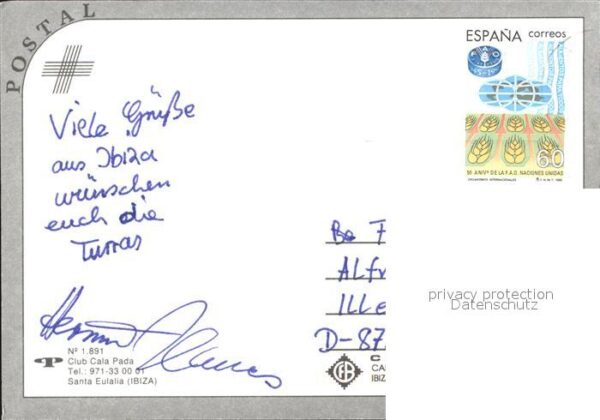 POSTAL
ESPAÑA correos
FAO
60
50 ANIVº DE LA F.A.O. NACIONES UNIDAS
ORGANISMOS INTERNACIONALES
Viele Grüße
aus Ibiza
wünschen
euch die
Turras
Be F
ALfr
ILLe
D-87
privacy protection
Datenschutz
Nº 1.891
Club Cala Pada
Tel.: 971-33 00 01
Santa Eulalia (IBIZA)
C
CA
IBIZ